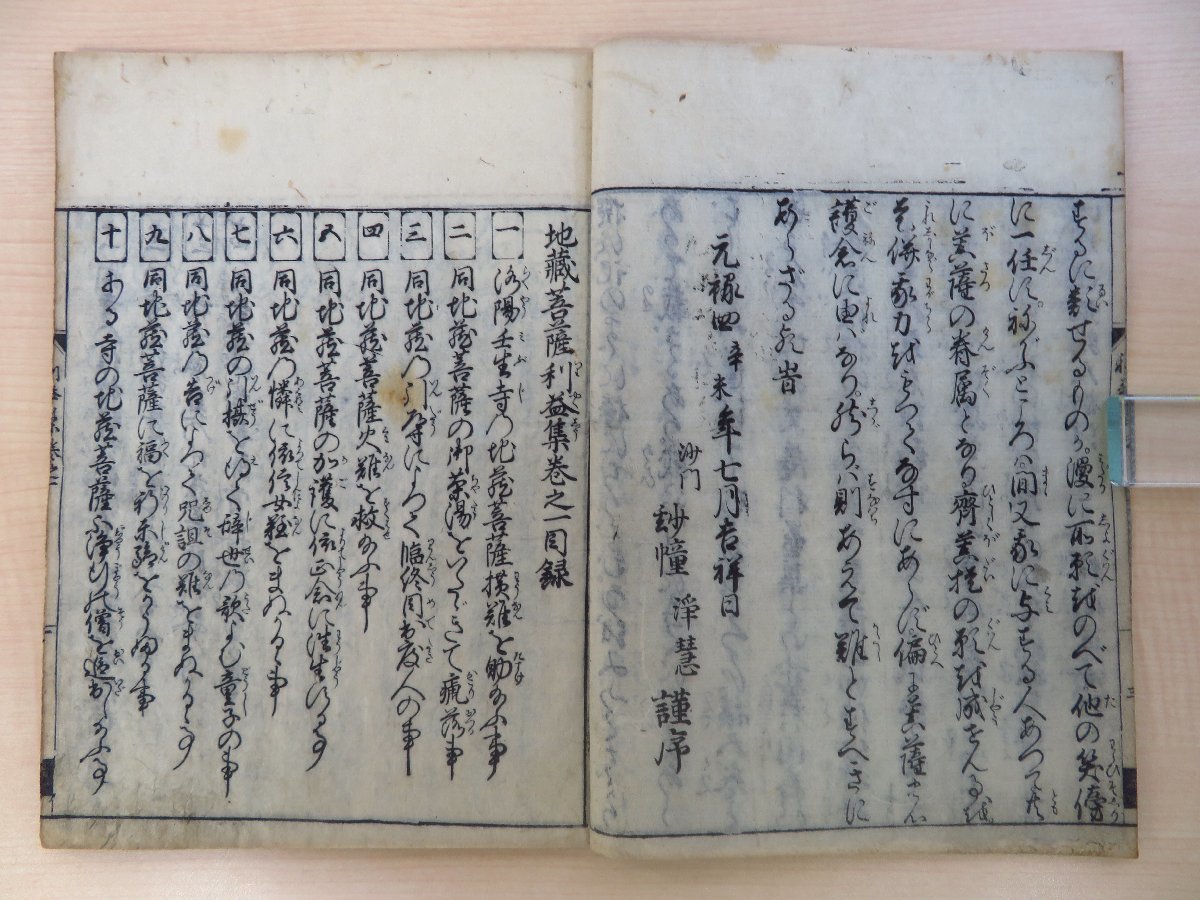 するに類せるものか。漫に所願をのべて他の笑傍
に一任に。ねがふところは間又我に与する人あつて共
に菩薩の眷属となり齊菩提の願を成ぜんことを
是併我力をもつてなすにあらず偏に菩薩
護念に由なり。然らば則あへて難とすべきに
あらざる歟旹
元禄四辛未年七月吉祥日
沙門 玅幢 淨慧 謹序
地藏菩薩利益集巻之一目録
一 洛陽壬生寺の地蔵菩薩横難を助給ふ事
二 同地蔵菩薩の御薬湯をいたゞきて瘧落事
三 同地蔵の引導によつて臨終目出度人の事
四 同地蔵菩薩火難を救給ふ事
五 同地蔵菩薩の加護に依正念に往生する事
六 同地蔵の憐に依信女難をまぬかるゝ事
七 同地蔵の引摂を得て辞世の歌よむ童子の事
八 同地蔵の告によつて呪詛の難をまぬかるゝ事
九 同地蔵菩薩に福を祈禄をうる事
十 ある寺の地蔵菩薩不浄の僧を追出し給ふ事